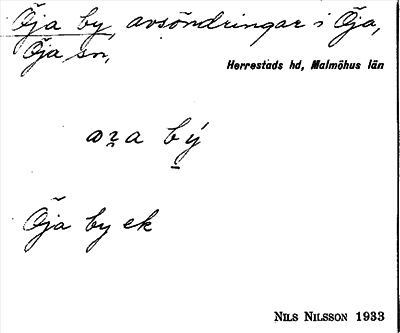 Öja by, avsöndringar i Öja,
Öja sn,
Herrestads hd, Malmöhus län
bý
Öja by ek
NILS NILSSON 1933